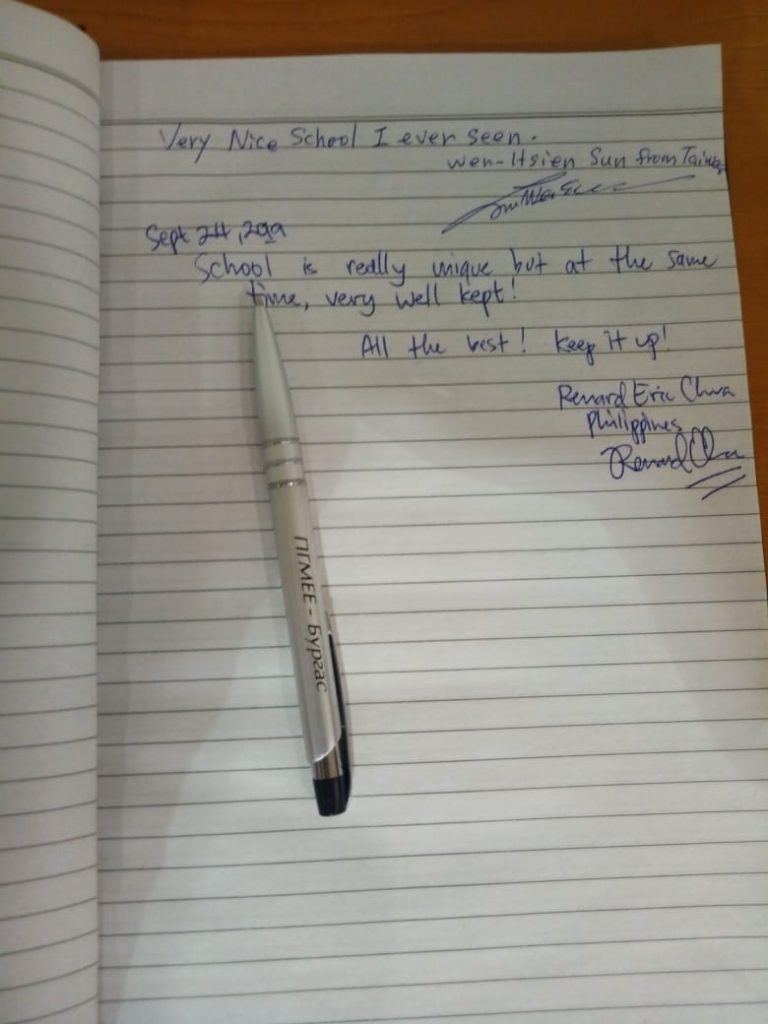 Very Nice School I ever seen.
Wen-Hsien Sun from Taiwan
Sept 24,
School is really unique but at the same
time, very well kept!
All the best! Keep it up!
Renard Eric Chua
Philippines
Renard Chua
ПГМЕЕ - Бургас